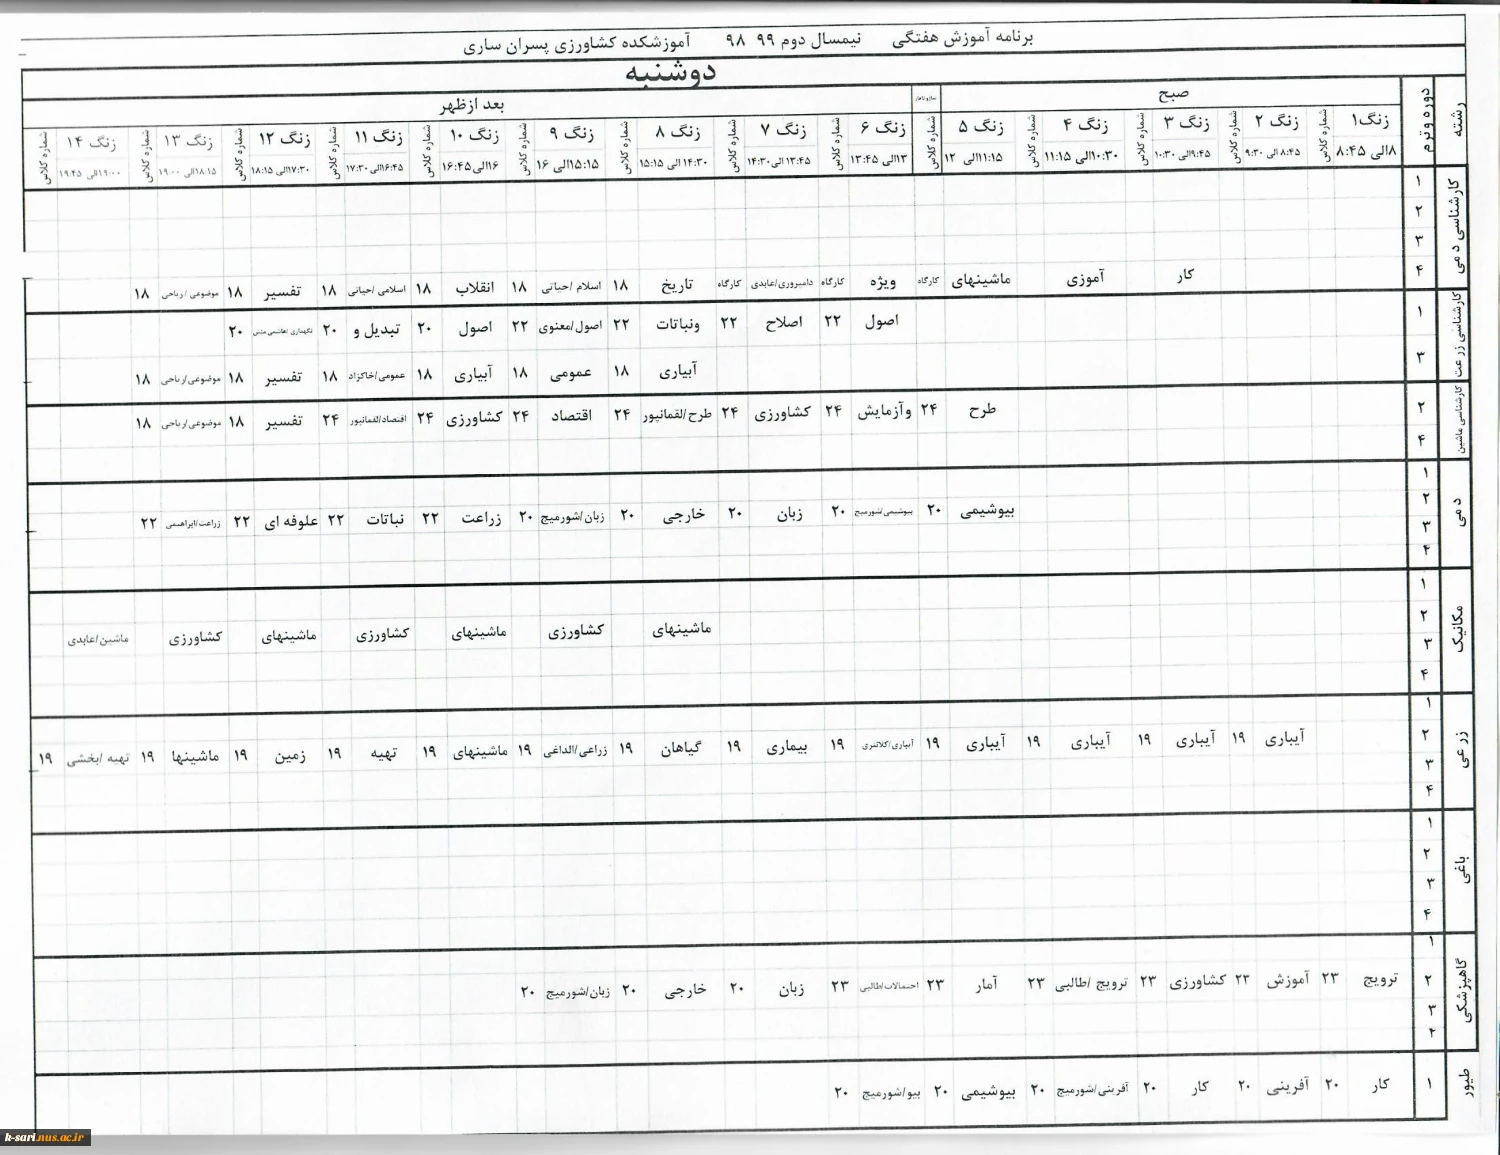 برنامه آموزش هفتگی نیمسال دوم ۹۹ ۹۸ آموزشکده کشاورزی پسران ساری
دوشنبه
رشته دوره و ترم صبح نماز و ناهار بعد ازظهر
زنگ۱ شماره کلاس زنگ ۲ شماره کلاس زنگ ۳ شماره کلاس زنگ ۴ شماره کلاس زنگ ۵ شماره کلاس زنگ ۶ شماره کلاس زنگ ۷ شماره کلاس زنگ ۸ شماره کلاس زنگ ۹ شماره کلاس زنگ ۱۰ شماره کلاس زنگ ۱۱ شماره کلاس زنگ ۱۲ شماره کلاس زنگ ۱۳ شماره کلاس زنگ ۱۴ شماره کلاس
۸الی ۸:۴۵ ۸:۴۵ الی ۹:۳۰ ۹:۴۵الی ۱۰:۳۰ ۱۰:۳۰الی ۱۱:۱۵ ۱۱:۱۵الی ۱۲ ۱۳الی ۱۳:۴۵ ۱۳:۴۵ الی ۱۴:۳۰ ۱۴:۳۰ الی ۱۵:۱۵ ۱۵:۱۵الی ۱۶ ۱۶الی ۱۶:۴۵ ۱۶:۴۵الی ۱۷:۳۰ ۱۷:۳۰الی ۱۸:۱۵ ۱۸:۱۵الی ۱۹:۰۰ ۱۹:۰۰الی ۱۹:۴۵
کارشناسی د می
۱
۲
۳
۴ کار آموزی ماشینهای کارگاه ویژه کارگاه دامپروری/عابدی کارگاه تاریخ ۱۸ اسلام /حیاتی ۱۸ انقلاب ۱۸ اسلامی /حیاتی ۱۸ تفسیر ۱۸ موضوعی /ریاحی ۱۸
کارشناسی زر عت
۱ اصول ۲۲ اصلاح ۲۲ ونباتات ۲۲ اصول/معنوی ۲۲ اصول ۲۰ تبدیل و ۲۰ ۲۰
۳ آبیاری ۱۸ عمومی ۱۸ آبیاری ۱۸ عمومی/خاکزاد ۱۸ تفسیر ۱۸ موضوعی/ریاحی ۱۸
کارشناسی ماشین
۲ طرح ۲۴ وآزمایش ۲۴ کشاورزی ۲۴ طرح/لقمانپور ۲۴ اقتصاد ۲۴ کشاورزی ۲۴ اقتصاد/لقمانپور ۲۴ تفسیر ۱۸ موضوعی/ریاحی ۱۸
۴
د می
۱
۲
۳ بیوشیمی ۲۰ بیوشیمی/شورمیج ۲۰ زبان ۲۰ خارجی ۲۰ زبان/شورمیج ۲۰ زراعت ۲۲ نباتات ۲۲ علوفه ای ۲۲ زراعت/ابراهیمی ۲۲
۴
مکانیک
۱
۲
۳ ماشینهای کشاورزی ماشینهای کشاورزی ماشینهای کشاورزی ماشین/عابدی
۴
زر عی
۱
۲ آیباری ۱۹ آیباری ۱۹ آیباری ۱۹ آیباری ۱۹ آبیاری/کلانتری ۱۹ بیماری ۱۹ گیاهان ۱۹ زراعی/الداغی ۱۹ ماشینهای ۱۹ تهیه ۱۹ زمین ۱۹ ماشینها ۱۹ تهیه /بخشی ۱۹
۳
۴
باغی
۱
۲
۳
۴
گاهپزشکی
۱
۲ ترویج ۲۳ آموزش ۲۳ کشاورزی ۲۳ ترویج /طالبی ۲۳ آمار ۲۳ احتمالات/طالبی ۲۳ زبان ۲۰ خارجی ۲۰ زبان/شورمیج ۲۰
۳
۲
طیور
۱ کار ۲۰ آفرینی ۲۰ کار ۲۰ آفرینی/شورمیج ۲۰ بیوشیمی ۲۰ بیو/شورمیج ۲۰
k-sari.nus.ac.ir